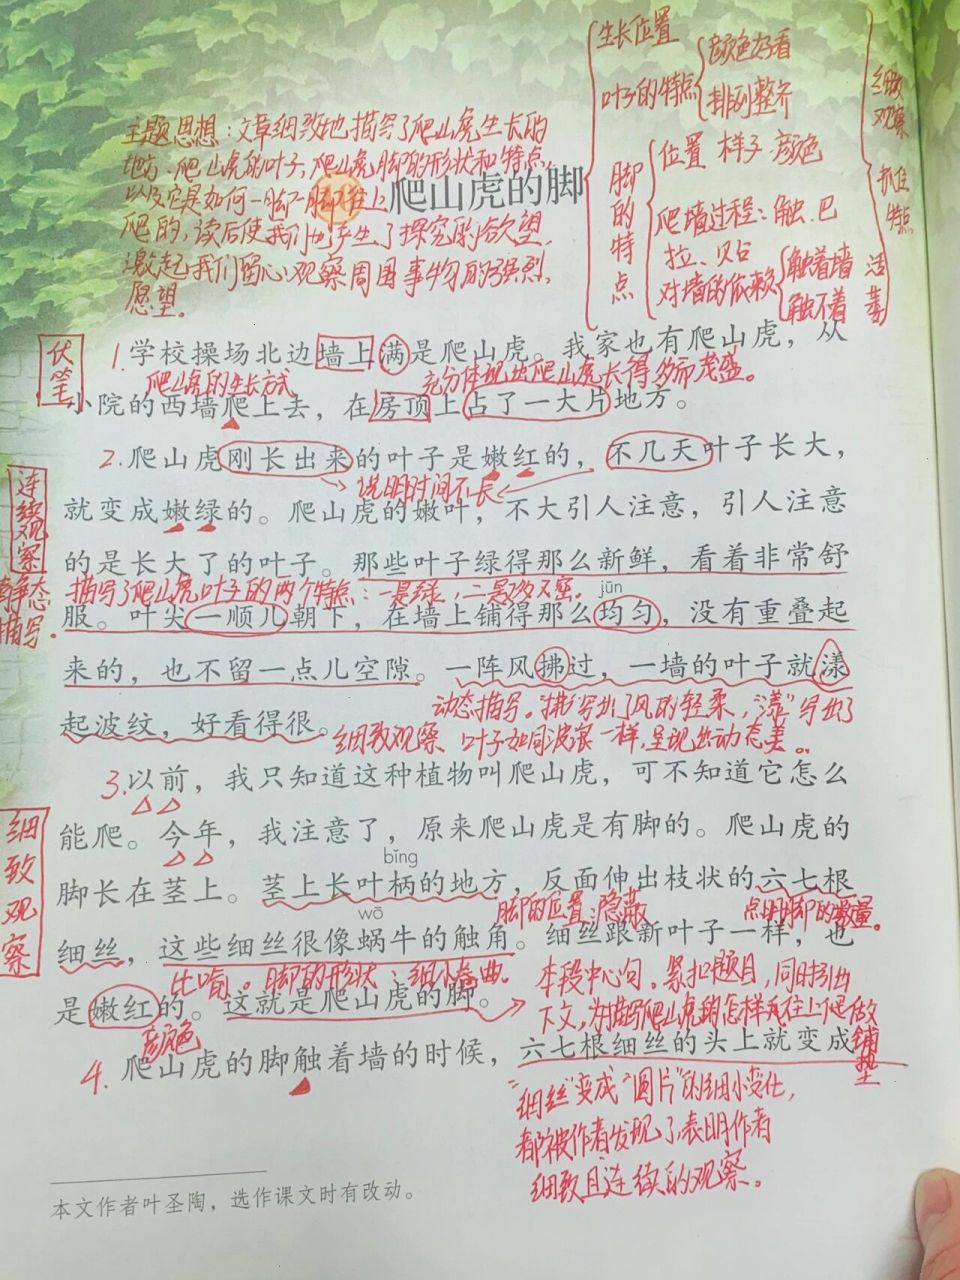 生长位置
叶子的特点
颜色好看
排列整齐
脚的特点
位置 样子 颜色
爬墙过程：触、巴
拉、贴
对墙的依赖
触着墙
触不着
细致观察 抓住特点
主题思想：文章细致地描写了爬山虎生长的
地方、爬山虎的叶子、爬山虎脚的形状和特点，
以及它是如何一脚一脚往上
爬的，读后使我们也产生了探究的欲望，
激起我们留心观察周围事物的强烈
愿望。
爬山虎的脚
伏笔
1.学校操场北边墙上满是爬山虎。我家也有爬山虎，从
爬山虎的生长方式
充分体现出爬山虎长得多而茂盛。
小院的西墙爬上去，在房顶上占了一大片地方。
2.爬山虎刚长出来的叶子是嫩红的，不几天叶子长大，
说明时间不长
连续观察
就变成嫩绿的。爬山虎的嫩叶，不大引人注意，引人注意
的是长大了的叶子。那些叶子绿得那么新鲜，看着非常舒
静态描写。
描写了爬山虎叶子的两个特点：一是绿，二是多又密。
jūn
服。叶尖一顺儿朝下，在墙上铺得那么均匀，没有重叠起
来的，也不留一点儿空隙。一阵风拂过，一墙的叶子就漾
动态描写。“拂”写出了风的轻柔，“漾”写出了
起波纹，好看得很。
细致观察
叶子如同波浪一样，呈现出动态美。
3.以前，我只知道这种植物叫爬山虎，可不知道它怎么
细致观察
能爬。今年，我注意了，原来爬山虎是有脚的。爬山虎的
bǐng
脚长在茎上。茎上长叶柄的地方，反面伸出枝状的六七根
wō
脚的位置：隐蔽
点明脚的数量。
细丝，这些细丝很像蜗牛的触角。细丝跟新叶子一样，也
比喻。脚的形状：细小卷曲。
本段中心句。紧扣题目，同时引出
是嫩红的。这就是爬山虎的脚。
颜色
下文，为描写爬山虎的脚怎样往上爬做
铺垫
4.爬山虎的脚触着墙的时候，六七根细丝的头上就变成
“细丝”变成“圆片”的细小变化，
都被作者发现了，表明作者
细致且连续的观察。
本文作者叶圣陶，选作课文时有改动。